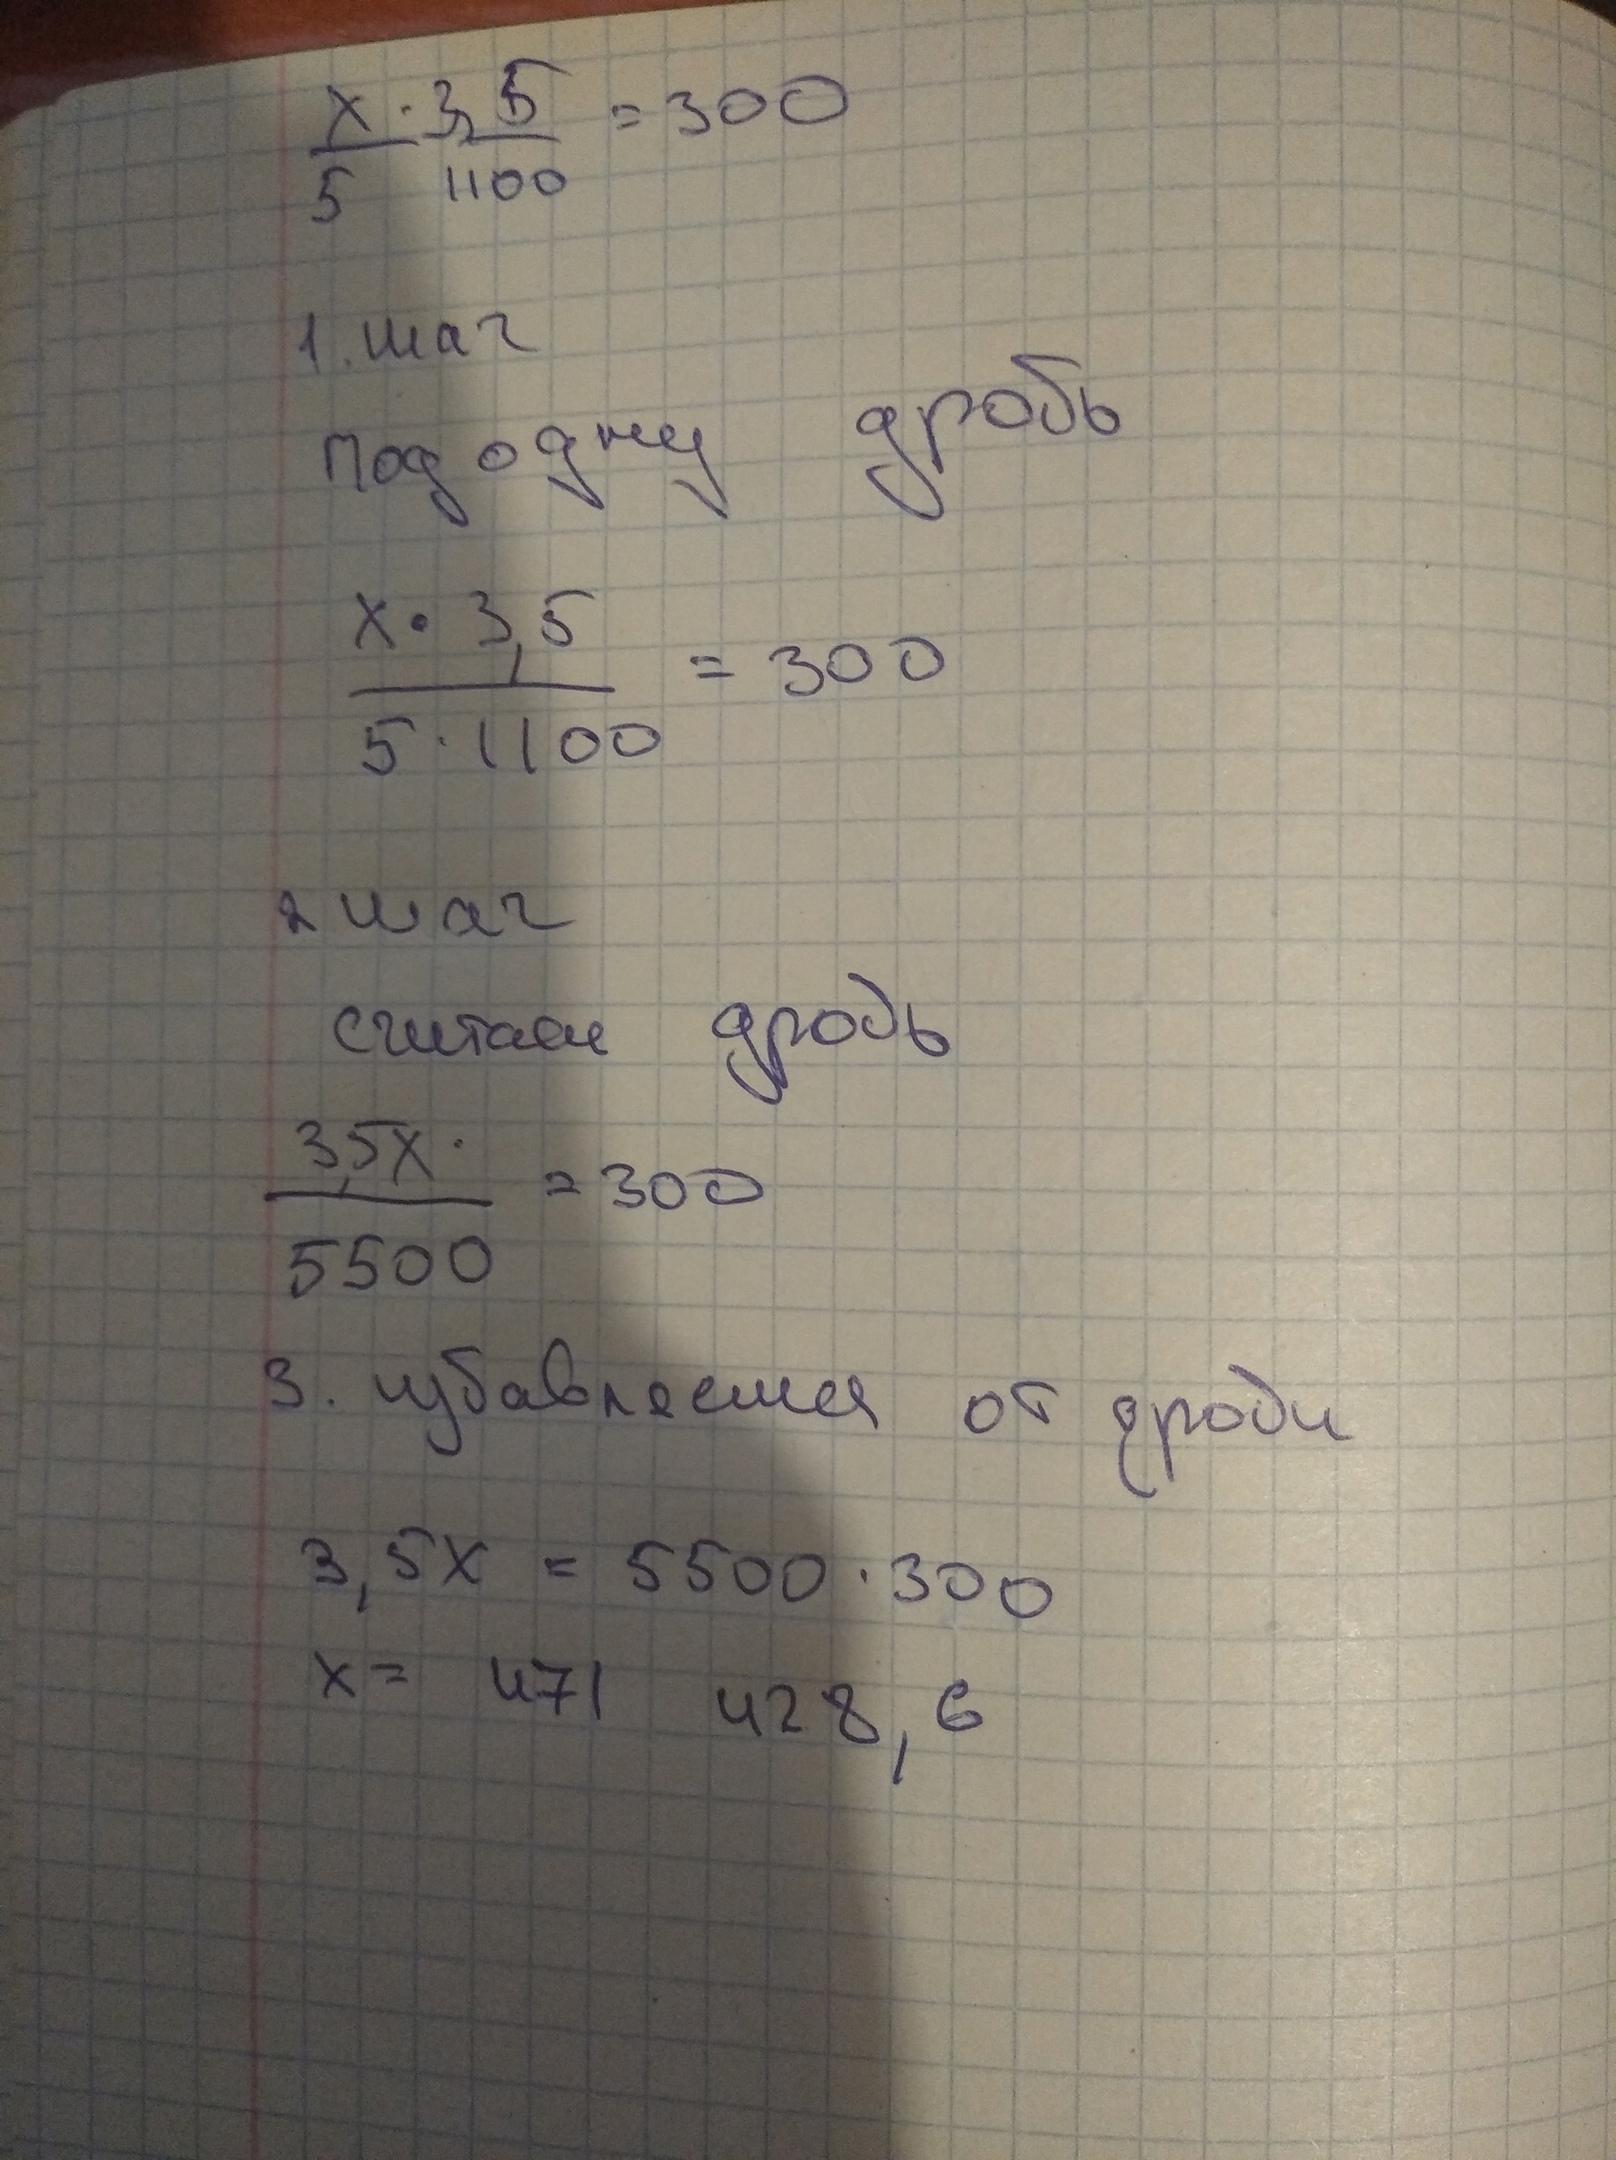 x · 3,5 = 300
5 1100
1. шаг
под одну дробь
x · 3,5
= 300
5 · 1100
2 шаг
считаем дробь
3,5x ·
= 300
5500
3. избавляемся от дроби
3,5x = 5500 · 300
x = 471 428,6